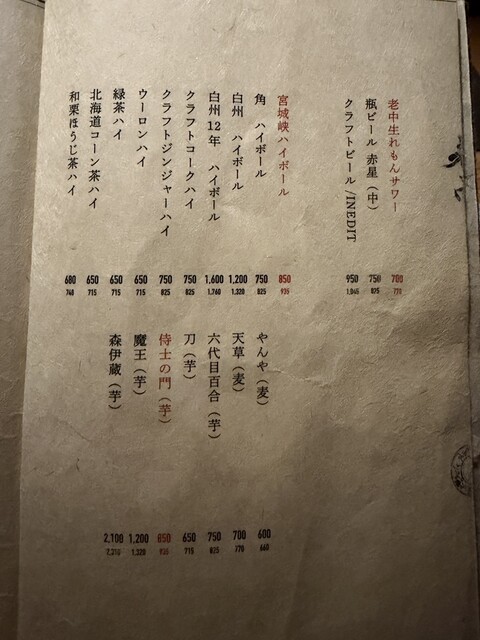 老中生れもんサワー 700 770
瓶ビール 赤星（中） 750 825
クラフトビール/INEDIT 950 1,045
宮城峡ハイボール 850 935
角 ハイボール 750 825
白州 ハイボール 1,200 1,320
白州12年 ハイボール 1,600 1,760
クラフトコークハイ 750 825
クラフトジンジャーハイ 750 825
ウーロンハイ 650 715
緑茶ハイ 650 715
北海道コーン茶ハイ 650 715
和栗ほうじ茶ハイ 680 748
やんや（麦） 600 660
天草（麦） 700 770
六代目百合（芋） 750 825
刀（芋） 650 715
侍士の門（芋） 850 935
魔王（芋） 1,200 1,320
森伊蔵（芋） 2,100 2,310